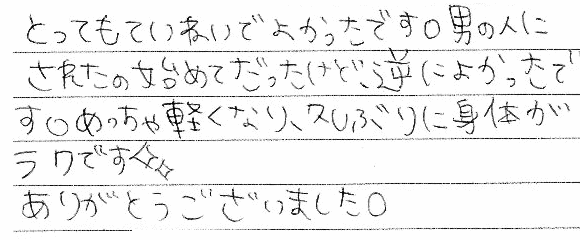 とってもていねいでよかったです。男の人に
されたの始めてだったけど、逆によかったで
す。めっちゃ軽くなり、久しぶりに身体が
ラクです✨
ありがとうございました。